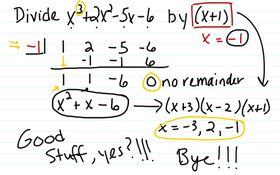 Divide x³+2x²-5x-6 by (x+1)
x = -1
⇒ -1 | 1 2 -5 -6
↓ -1 -1 6
1 1 -6 0 no remainder
x² + x - 6 → (x+3)(x-2)(x+1)
x = -3, 2, -1
Good
Stuff, yes?!!!
Bye!!!